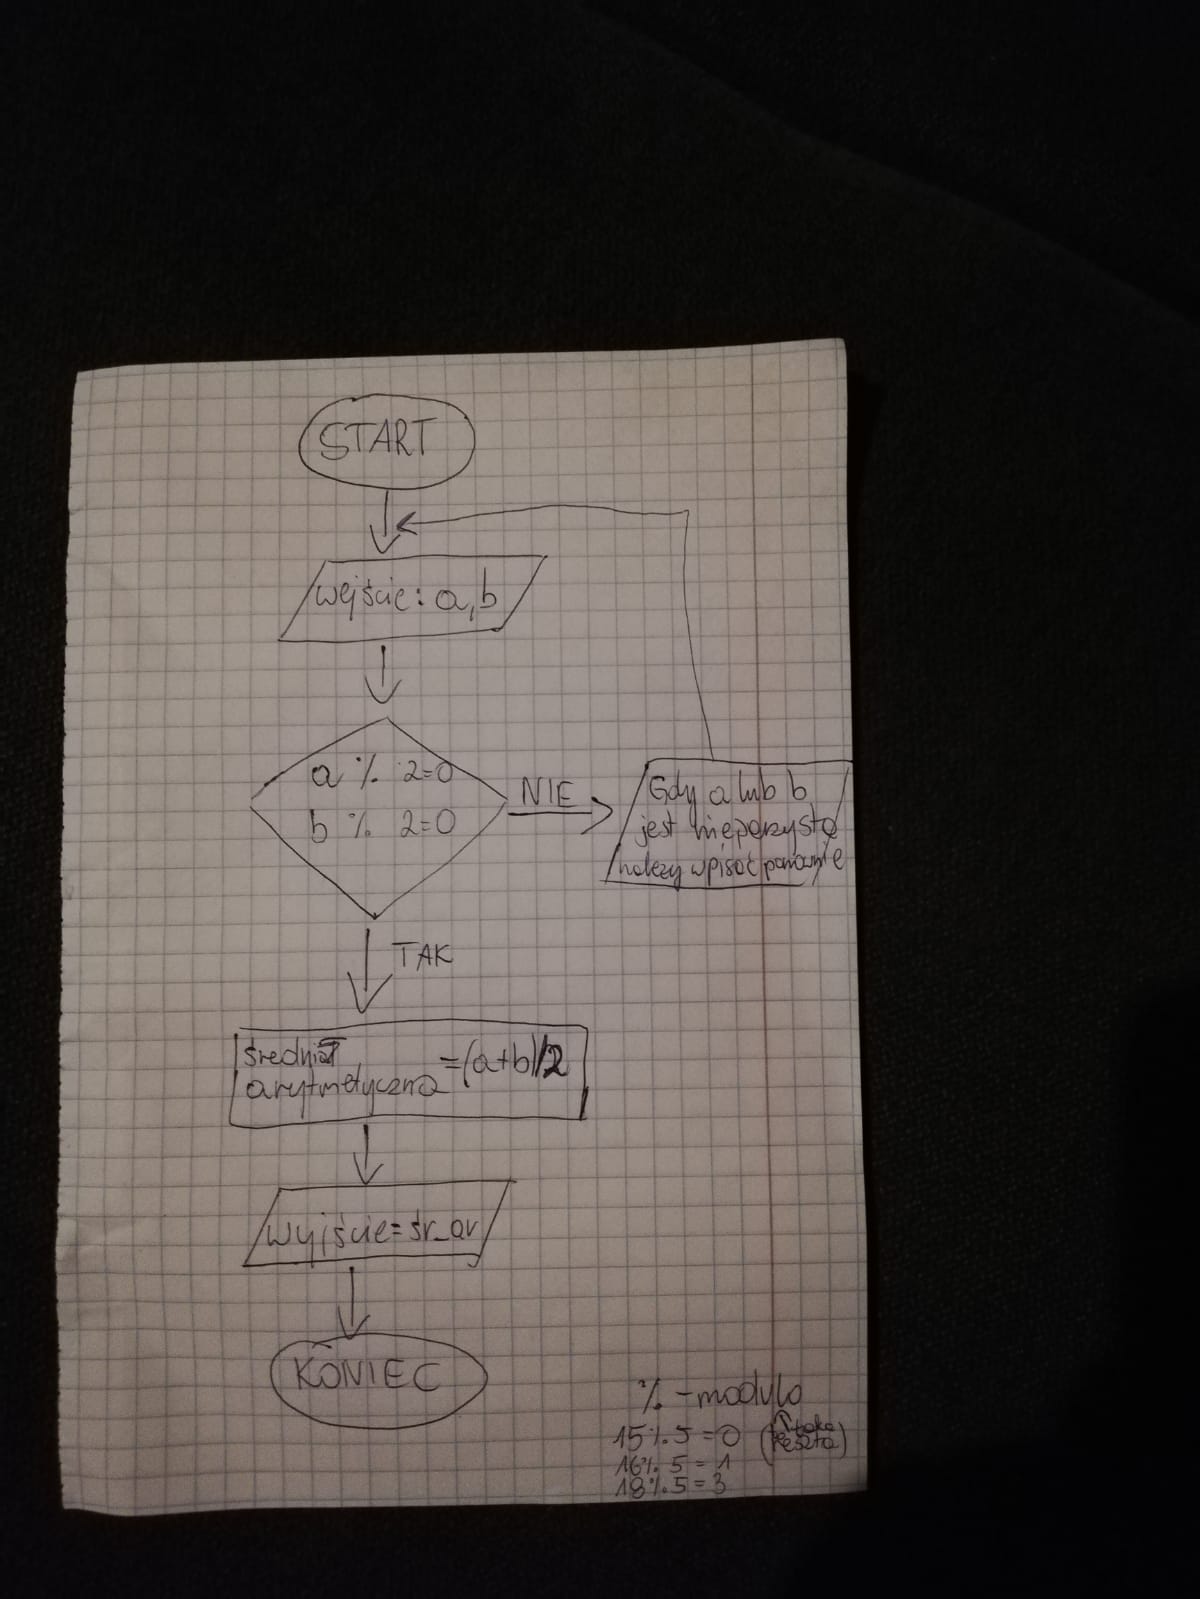 START
wejście: a, b
a % 2=0
b % 2=0
NIE
Gdy a lub b
jest nieparzyste
należy wpisać ponownie
TAK
średnia
arytmetyczna =(a+b)/2
wyjście= śr_ar
KONIEC
% - modulo
15%5=0 (reszta)
16%5=1
18%5=3